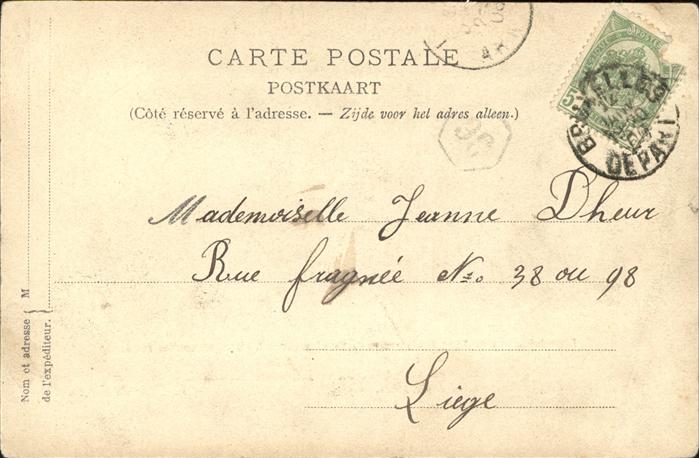 CARTE POSTALE
POSTKAART
(Côté réservé à l'adresse. — Zijde voor het adres alleen.)
BRUXELLES
DEPART
5
Mademoiselle Jeanne Dheur
Rue fragnée No. 38 ou 98
Liège
Nom et adresse
de l'expéditeur.
M